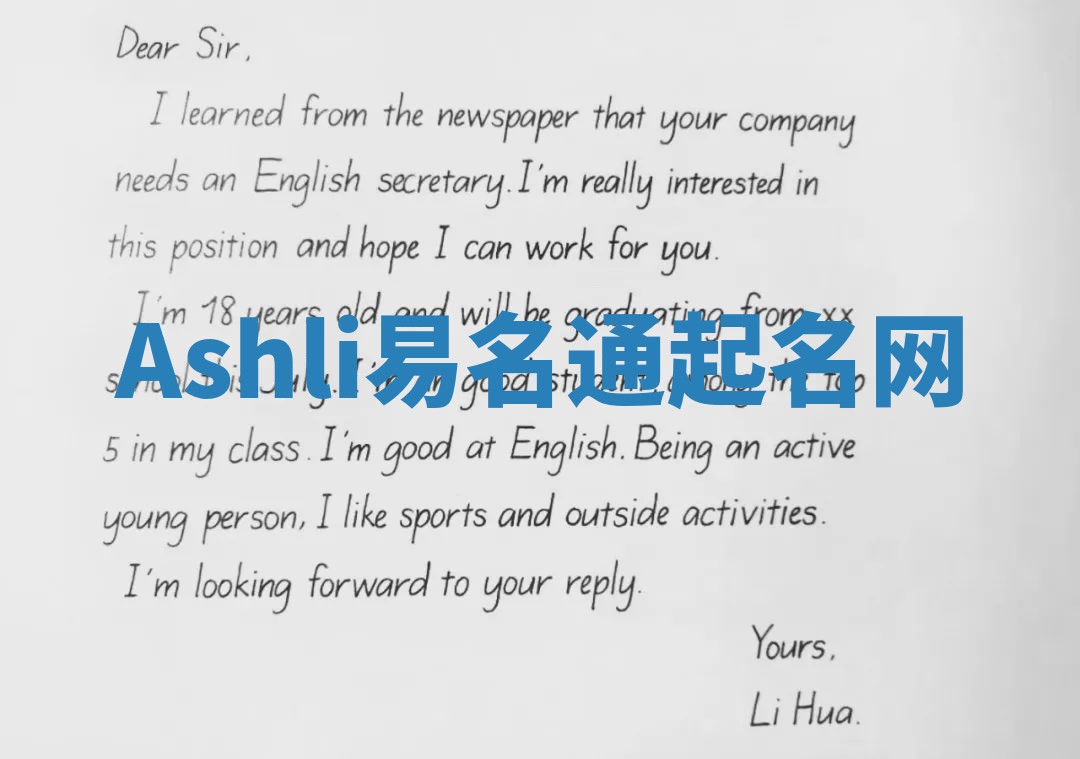 Dear Sir,
I learned from the newspaper that your company
needs an English secretary. I'm really interested in
this position and hope I can work for you.
I'm 18 years old and will be graduating from xx
Ashli易名通起名网
school this July. I'm good student among the top
5 in my class. I'm good at English. Being an active
young person, I like sports and outside activities.
I'm looking forward to your reply.
Yours,
Li Hua.